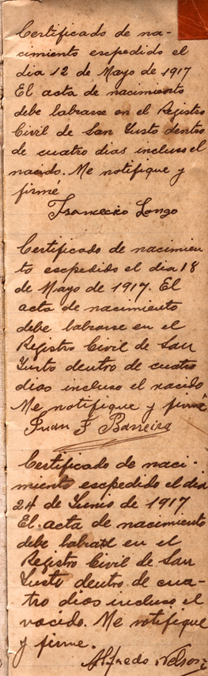 Certificado de na-
cimiento escpedido el
dia 12 de Mayo de 1917
El acta de nacimiento
debe labrarse en el Registro
Civil de San Justo dentro
de cuatro dias incluso el
nacido. Me notifique y
firmé
Francisco Longo
Certificado de nacimien
to escpedido el dia 18
de Mayo de 1917. El
acta de nacimiento
debe labrarse en el
Registro Civil de San
Justo dentro de cuatro
dias incluso el nacido
Me notifique y firmé
Juan F Barreira
Certificado de naci-
miento escpedido el dia
24 de Junio de 1917
El acta de nacimiento
debe labrarse en el
Registro Civil de San
Justo dentro de cua-
tro dias incluso el
nacido. Me notifique
y firme.
Alfredo Nelson